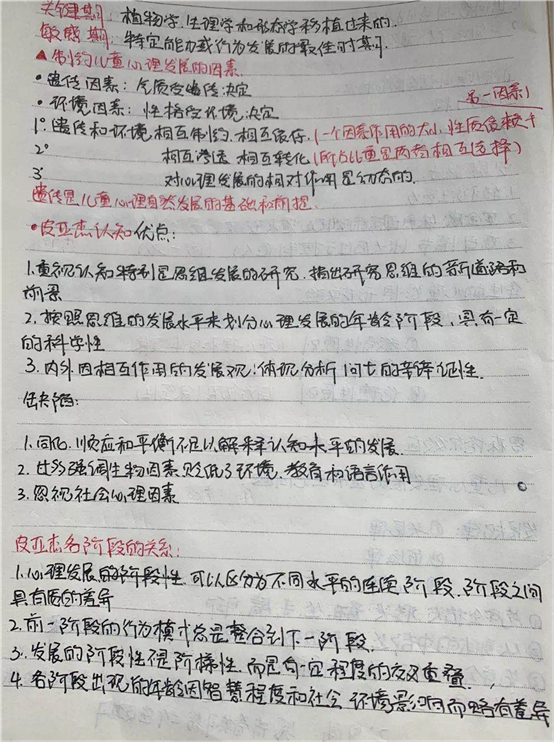 关键期：植物学.生理学和形态学移植过来的.
敏感期：特定能力或行为发展的最佳时期.
▲制约儿童心理发展的因素.
•遗传因素：气质受遗传决定
•环境因素：性格受环境决定
1°遗传和环境相互制约.相互依存.(一个因素作用的大小,性质依赖于另一因素)
2° 相互渗透 相互转化(所以更重是两者相互选择)
3° 对心理发展的相对作用是动态的.
遗传是儿童心理自然发展的基础和前提.
•皮亚杰认知优点：
1.重视认知特别是思维发展的研究.指出研究思维的新道路和
前景
2.按照思维的发展水平来划分心理发展的年龄阶段,具有一定
的科学性
3.内外因相互作用的发展观:体现分析问题的辩证性.
缺陷:
1.同化.顺应和平衡不足以解释认知水平的发展.
2.过多强调生物因素.贬低了环境.教育和语言作用
3.忽视社会心理因素
皮亚杰各阶段的关系:
1.心理发展的阶段性.可以区分为不同水平的连续阶段.阶段之间
具有质的差异
2.前一阶段的行为模式总是整合到下一阶段.
3.发展的阶段性不是阶梯性.而是有一定程度的交叉重叠.
4.各阶段出现的年龄因智慧程度和社会环境影响而略有差异